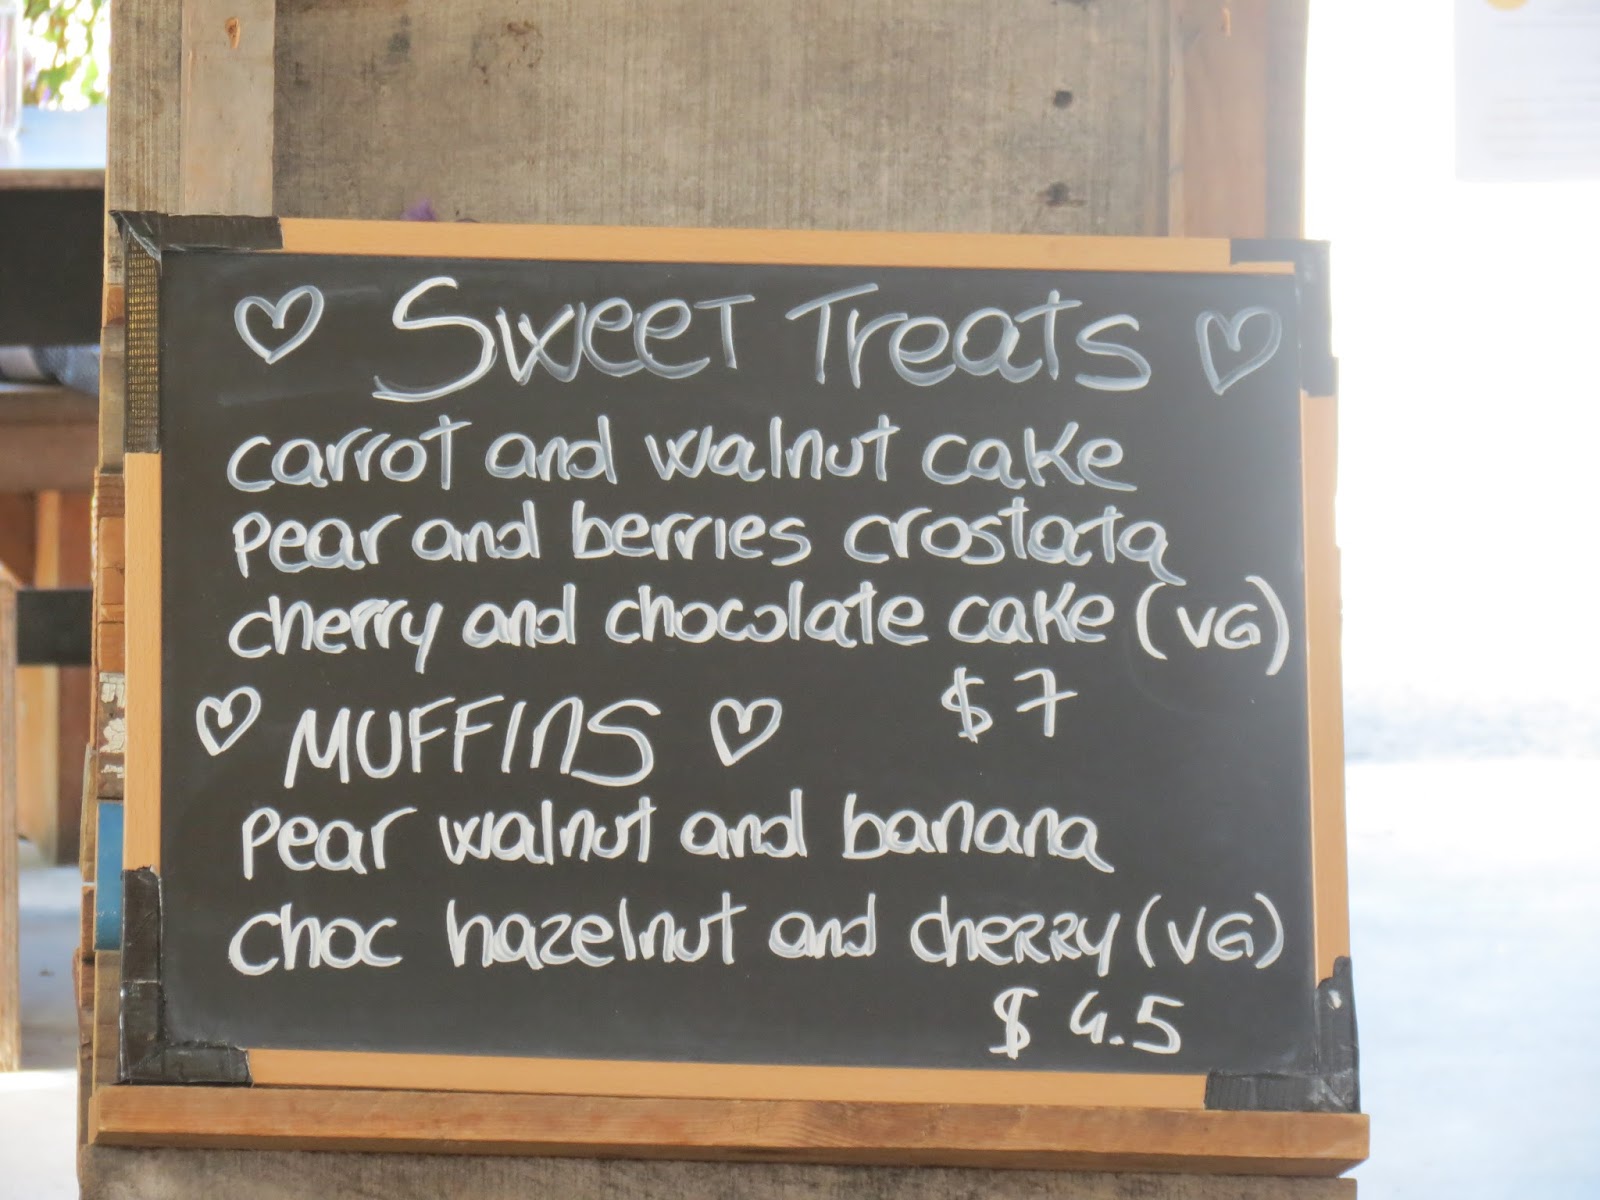 Sweet Treats
carrot and walnut cake
pear and berries crostata
cherry and chocolate cake (VG)
$7
MUFFINS
pear walnut and banana
choc hazelnut and cherry (VG)
$4.5